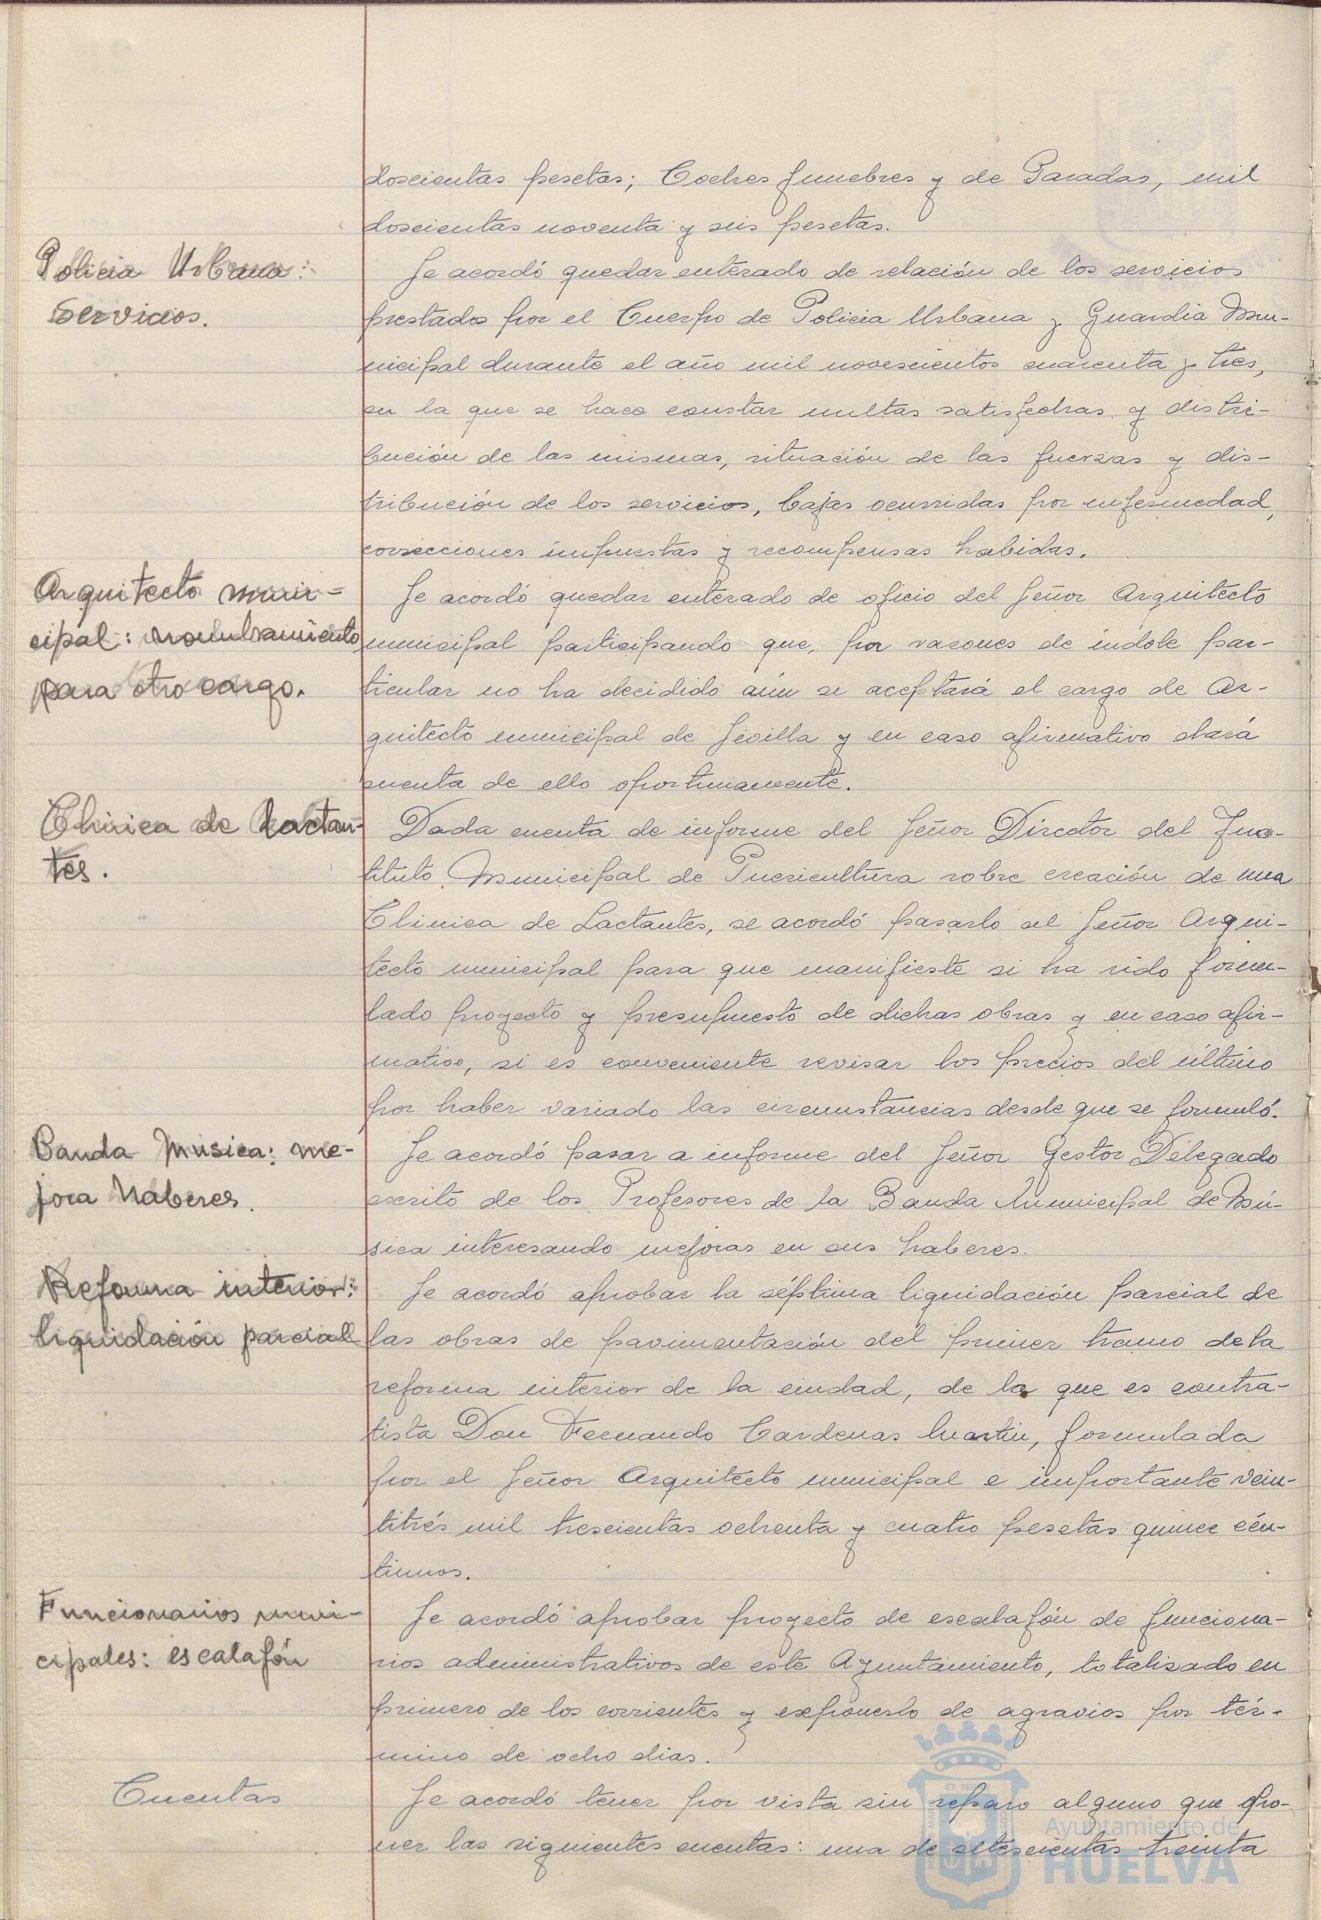 doscientas pesetas; Coches funebres y de Paradas, mil
doscientas noventa y seis pesetas.
Policia Urbana:
Servicios.
Se acordó quedar enterado de relación de los servicios
prestados por el Cuerpo de Policia Urbana y Guardia Mu-
nicipal durante el año mil novescientos cuarenta y tres,
en la que se hace constar multas satisfechas y distri-
bución de las mismas, situación de las fuerzas y dis-
tribución de los servicios, bajas ocurridas por enfermedad,
correcciones impuestas y recompensas habidas.
Arquitecto muni-
cipal: nombramiento
para otro cargo.
Se acordó quedar enterado de oficio del Señor Arquitecto
municipal participando que, por razones de indole par-
ticular no ha decidido aún si aceptará el cargo de Ar-
quitecto municipal de Sevilla y en caso afirmativo dará
cuenta de ello oportunamente.
Clinica de Lactan-
tes.
Dada cuenta de informe del Señor Director del Ins-
tituto Municipal de Puericultura sobre creación de una
Clinica de Lactantes, se acordó pasarlo al Señor Arqui-
tecto municipal para que manifieste si ha sido formu-
lado proyecto y presupuesto de dichas obras y en caso afir-
mativo, si es conveniente revisar los precios del último
por haber variado las circunstancias desde que se formuló.
Banda Música: me-
jora Haberes.
Se acordó pasar a informe del Señor Gestor Delegado
escrito de los Profesores de la Banda Municipal de Mú-
sica interesando mejoras en sus haberes.
Reforma interior:
liquidación parcial
Se acordó aprobar la séptima liquidación parcial de
las obras de pavimentación del primer tramo de la
reforma interior de la ciudad, de la que es contra-
tista Don Fernando Cardenas Martin, formulada
por el Señor Arquitecto municipal e importante vein-
titrés mil trescientas ochenta y cuatro pesetas quince cén-
timos.
Funcionarios muni-
cipales: escalafón
Se acordó aprobar proyecto de escalafón de funciona-
rios administrativos de este Ayuntamiento, totalizado en
primero de los corrientes y exponerlo de agravios por tér-
mino de ocho dias.
Cuentas
Se acordó tener por vista sin reparo alguno que opo-
ner las siguientes cuentas: una de setescientas treinta
Ayuntamiento de
HUELVA